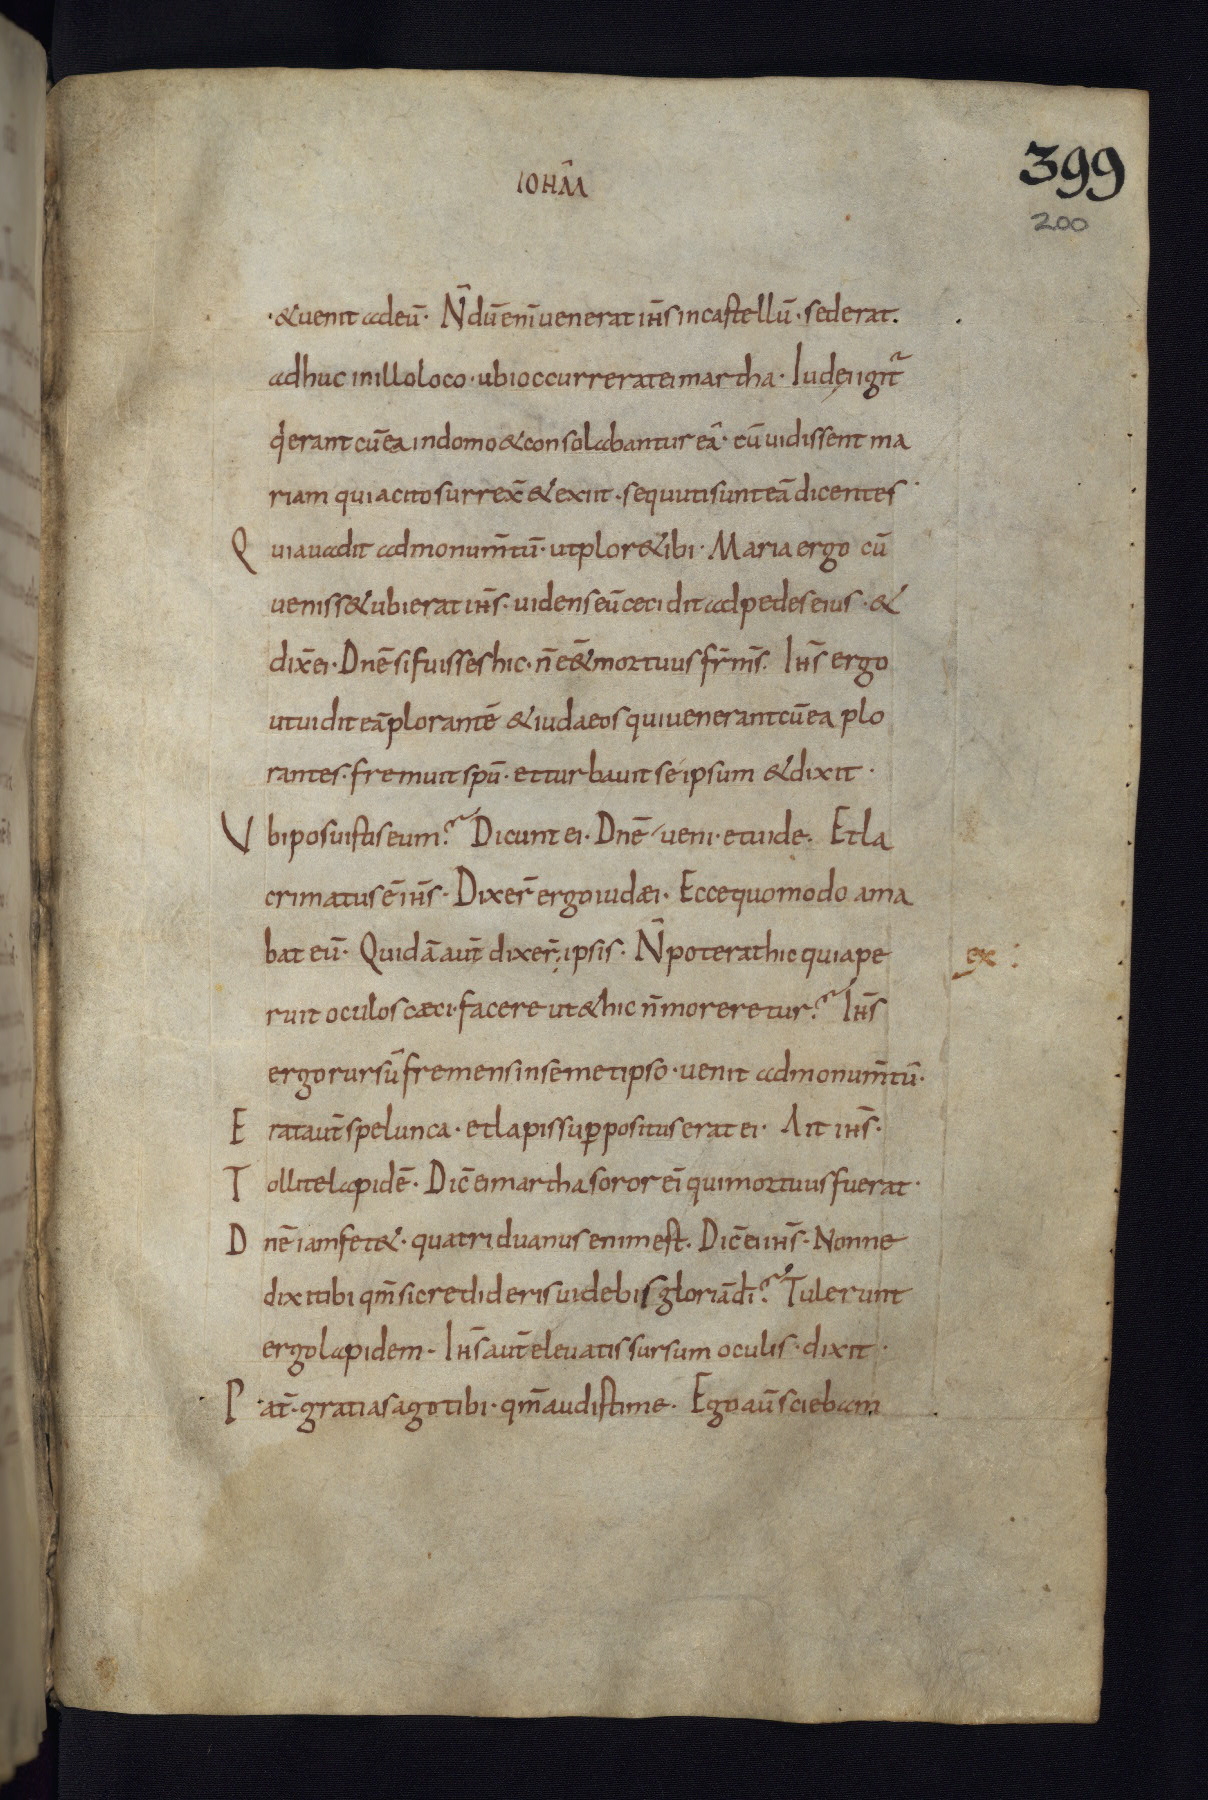 IOHAN̄
399
200
·&uenit adeū· N̄dūenī uenerat ih̄s incastellū· sederat.
adhuc inilloloco· ubioccurrerateimartha· Iudęiigit̄
q̄erant cūea indomo&consolabantur eā· cū uidissent ma
riam quiacitosurrex̄&exiit· sequutisunteādicentes
Q uiauadit admonum̄tū· utplor&ibi· Mariaergo cū
ueniss&ubierat ih̄s· uidenseūceciditadpedeseius·&
dix̄ei· Dn̄esifuisseshic· n̄e&̄mortuus fr̄m̄s. Ih̄s ergo
utuidit eāplorantē &iudaeos quiuenerantcūea plo
rantes· fremuitspū· etturbauit seipsum &dixit·
V biposuistiseum? Dicunt ei· Dn̄e ueni· etuide. Etla
crimatusē ih̄s· Dixer̄ ergoiudæi· Eccequomodo ama
bat eū· Quidāaut̄ dixer̄; ipsis· N̄poterathicquiape
ex
ruit oculoscæci· facere ut&hic n̄moreretur? Ih̄s
ergorursūfremensinsemetipso· uenit admonum̄tū·
E rataut̄spelunca· etlapissuꝑpositus erat ei· Ait ih̄s·
T ollitelapidē· Dic̄eimarthasororeī quimortuusfuerat·
D n̄eiamfet&· quatriduanusenimest. Dic̄ei ih̄s· Nonne
dixitibi qm̄sicredideris uidebis gloriād̄i? Tulerunt
ergolapidem· Ih̄saut̄eleuatissursum oculis· dixit·
P at̄· gratiasagotibi· qm̄audistime· Egoaūsciebam